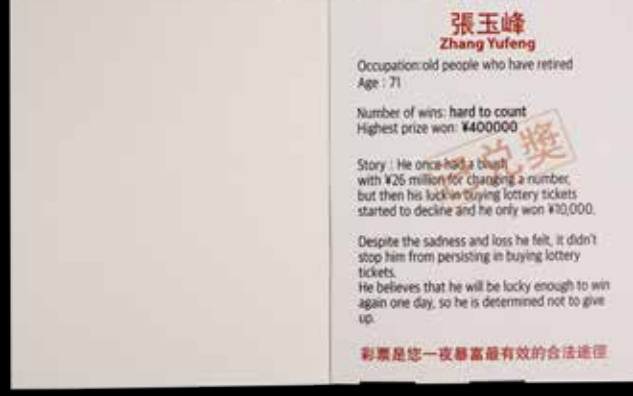 張玉峰
Zhang Yufeng
Occupation:old people who have retired
Age : 71
Number of wins: hard to count
Highest prize won: ¥400000
Story : He once had a brush
with ¥26 million for changing a number,
but then his luck in buying lottery tickets
started to decline and he only won ¥10,000.
Despite the sadness and loss he felt, it didn't
stop him from persisting in buying lottery
tickets.
He believes that he will be lucky enough to win
again one day, so he is determined not to give
up.
兌獎
彩票是您一夜暴富最有效的合法途徑